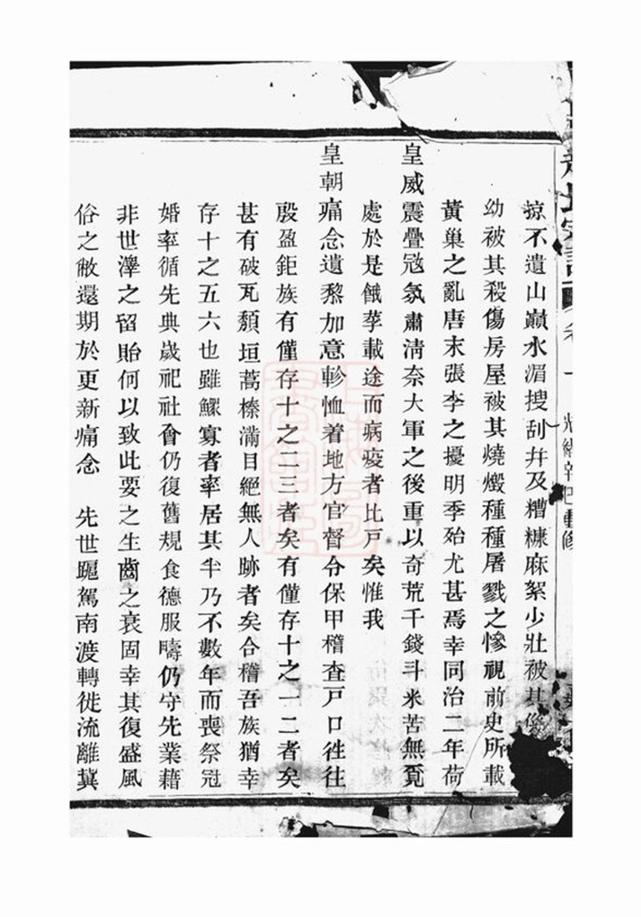 氏家譜 卷一 光緒辛巳重修
掠不遺山巔水湄搜刮幷及糟糠麻絮少壯被其
幼被其殺傷房屋被其燒燬種種屠戮之慘視前史所載
黃巢之亂唐末張李之擾明季殆尤甚焉幸同治二年荷
皇威震疊寇氛肅清奈大軍之後重以奇荒千錢斗米苦無覓
處於是餓莩載途而病疫者比戶矣惟我
皇朝痌念遺黎加意軫恤着地方官督令保甲稽查戶口徃往
殷盈鉅族有僅存十之二三者矣有僅存十之一二者矣
甚有破瓦頹垣蒿榛滿目絕無人跡者矣合稽吾族猶幸
存十之五六也雖鰥寡者率居其半乃不數年而喪祭冠
婚率循先典歲祀社會仍復舊規食德服疇仍守先業藉
非世澤之留貽何以致此要之生齒之衰固幸其復盛風
俗之敝還期於更新痛念 先世驅駕南渡轉徙流離冀